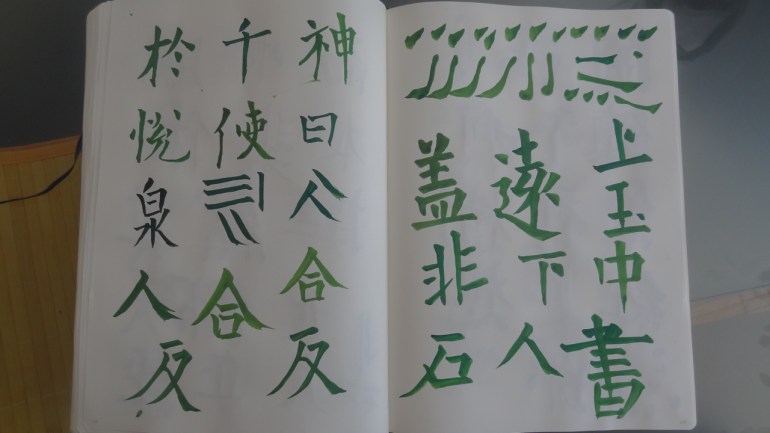 上玉中書
遠下人
盖非石
神曰合反
千使合
於悦泉人反